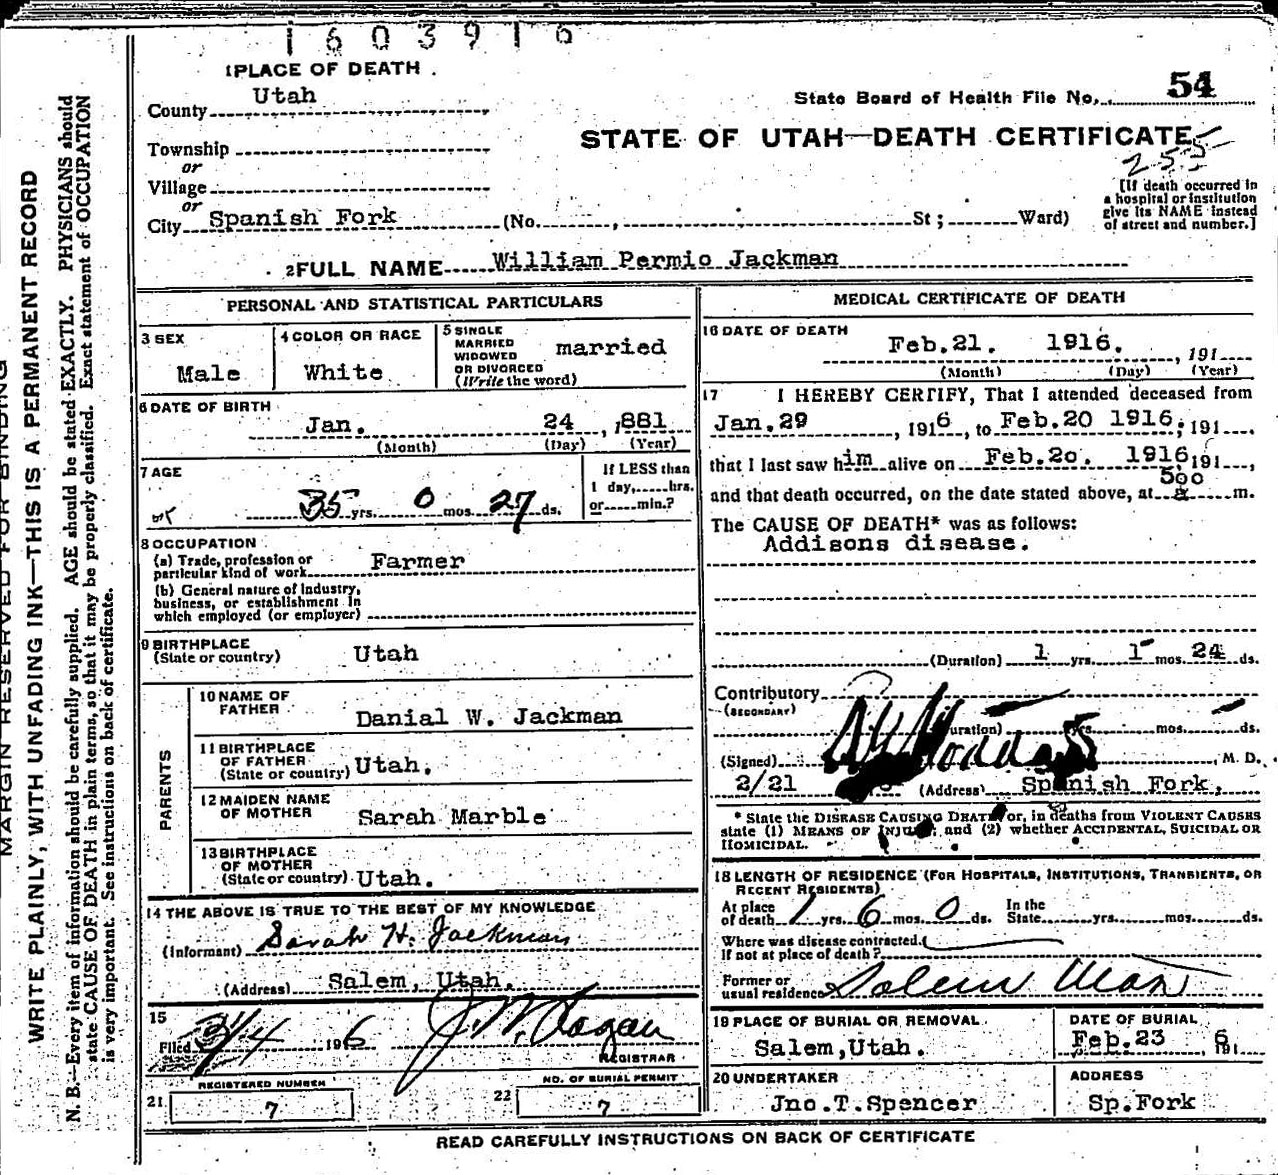 1603916
1 PLACE OF DEATH
County Utah
State Board of Health File No. 54
STATE OF UTAH—DEATH CERTIFICATE
255
Township
or
Village
or
City Spanish Fork (No. , St; Ward)
[If death occurred in
a hospital or institution
give its NAME instead
of street and number.]
2 FULL NAME William Permio Jackman
PERSONAL AND STATISTICAL PARTICULARS
3 SEX
Male
4 COLOR OR RACE
White
5 SINGLE
MARRIED
WIDOWED
OR DIVORCED
(Write the word)
married
6 DATE OF BIRTH
Jan. 24, 1881
(Month) (Day) (Year)
7 AGE
35 yrs. 0 mos. 27 ds.
If LESS than
1 day, hrs.
or min.?
8 OCCUPATION
(a) Trade, profession or
particular kind of work Farmer
(b) General nature of Industry,
business, or establishment in
which employed (or employer)
9 BIRTHPLACE
(State or country) Utah
PARENTS
10 NAME OF
FATHER Danial W. Jackman
11 BIRTHPLACE
OF FATHER
(State or country) Utah.
12 MAIDEN NAME
OF MOTHER Sarah Marble
13 BIRTHPLACE
OF MOTHER
(State or country) Utah.
14 THE ABOVE IS TRUE TO THE BEST OF MY KNOWLEDGE
(Informant) Sarah H. Jackman
(Address) Salem, Utah.
15
Filed 3/4 1916 J. W. Logan
REGISTRAR
REGISTERED NUMBER
21 7
NO. OF BURIAL PERMIT
22 7
MEDICAL CERTIFICATE OF DEATH
16 DATE OF DEATH
Feb.21. 1916. , 191
(Month) (Day) (Year)
17 I HEREBY CERTIFY, That I attended deceased from
Jan.29 , 1916, to Feb.20 1916. ; 191 ,
that I last saw him alive on Feb.20. 1916, 191 ,
500
and that death occurred, on the date stated above, at a m.
The CAUSE OF DEATH* was as follows:
Addisons disease.
(Duration) 1 yrs. 1 mos. 24 ds.
Contributory
(SECONDARY)
(Duration) yrs. mos. ds.
(Signed) , M. D.
2/21 (Address) Spanish Fork,
* State the DISEASE CAUSING DEATH, or, in deaths from VIOLENT CAUSES
state (1) MEANS OF INJURY; and (2) whether ACCIDENTAL, SUICIDAL OR
HOMICIDAL.
18 LENGTH OF RESIDENCE (FOR HOSPITALS, INSTITUTIONS, TRANSIENTS, OR
RECENT RESIDENTS)
At place
of death 1 yrs. 6 mos. 0 ds. In the
State yrs. mos. ds.
Where was disease contracted.
If not at place of death?
Former or
usual residence Salem Utah
19 PLACE OF BURIAL OR REMOVAL
Salem, Utah.
DATE OF BURIAL
Feb.23 , 1916
20 UNDERTAKER
Jno.T.Spencer
ADDRESS
Sp.Fork
READ CAREFULLY INSTRUCTIONS ON BACK OF CERTIFICATE
MARGIN RESERVED FOR BINDING
WRITE PLAINLY, WITH UNFADING INK—THIS IS A PERMANENT RECORD
N. B.—Every item of information should be carefully supplied. AGE should be stated EXACTLY. PHYSICIANS should
state CAUSE OF DEATH in plain terms, so that it may be properly classified. Exact statement of OCCUPATION
is very important. See instructions on back of certificate.